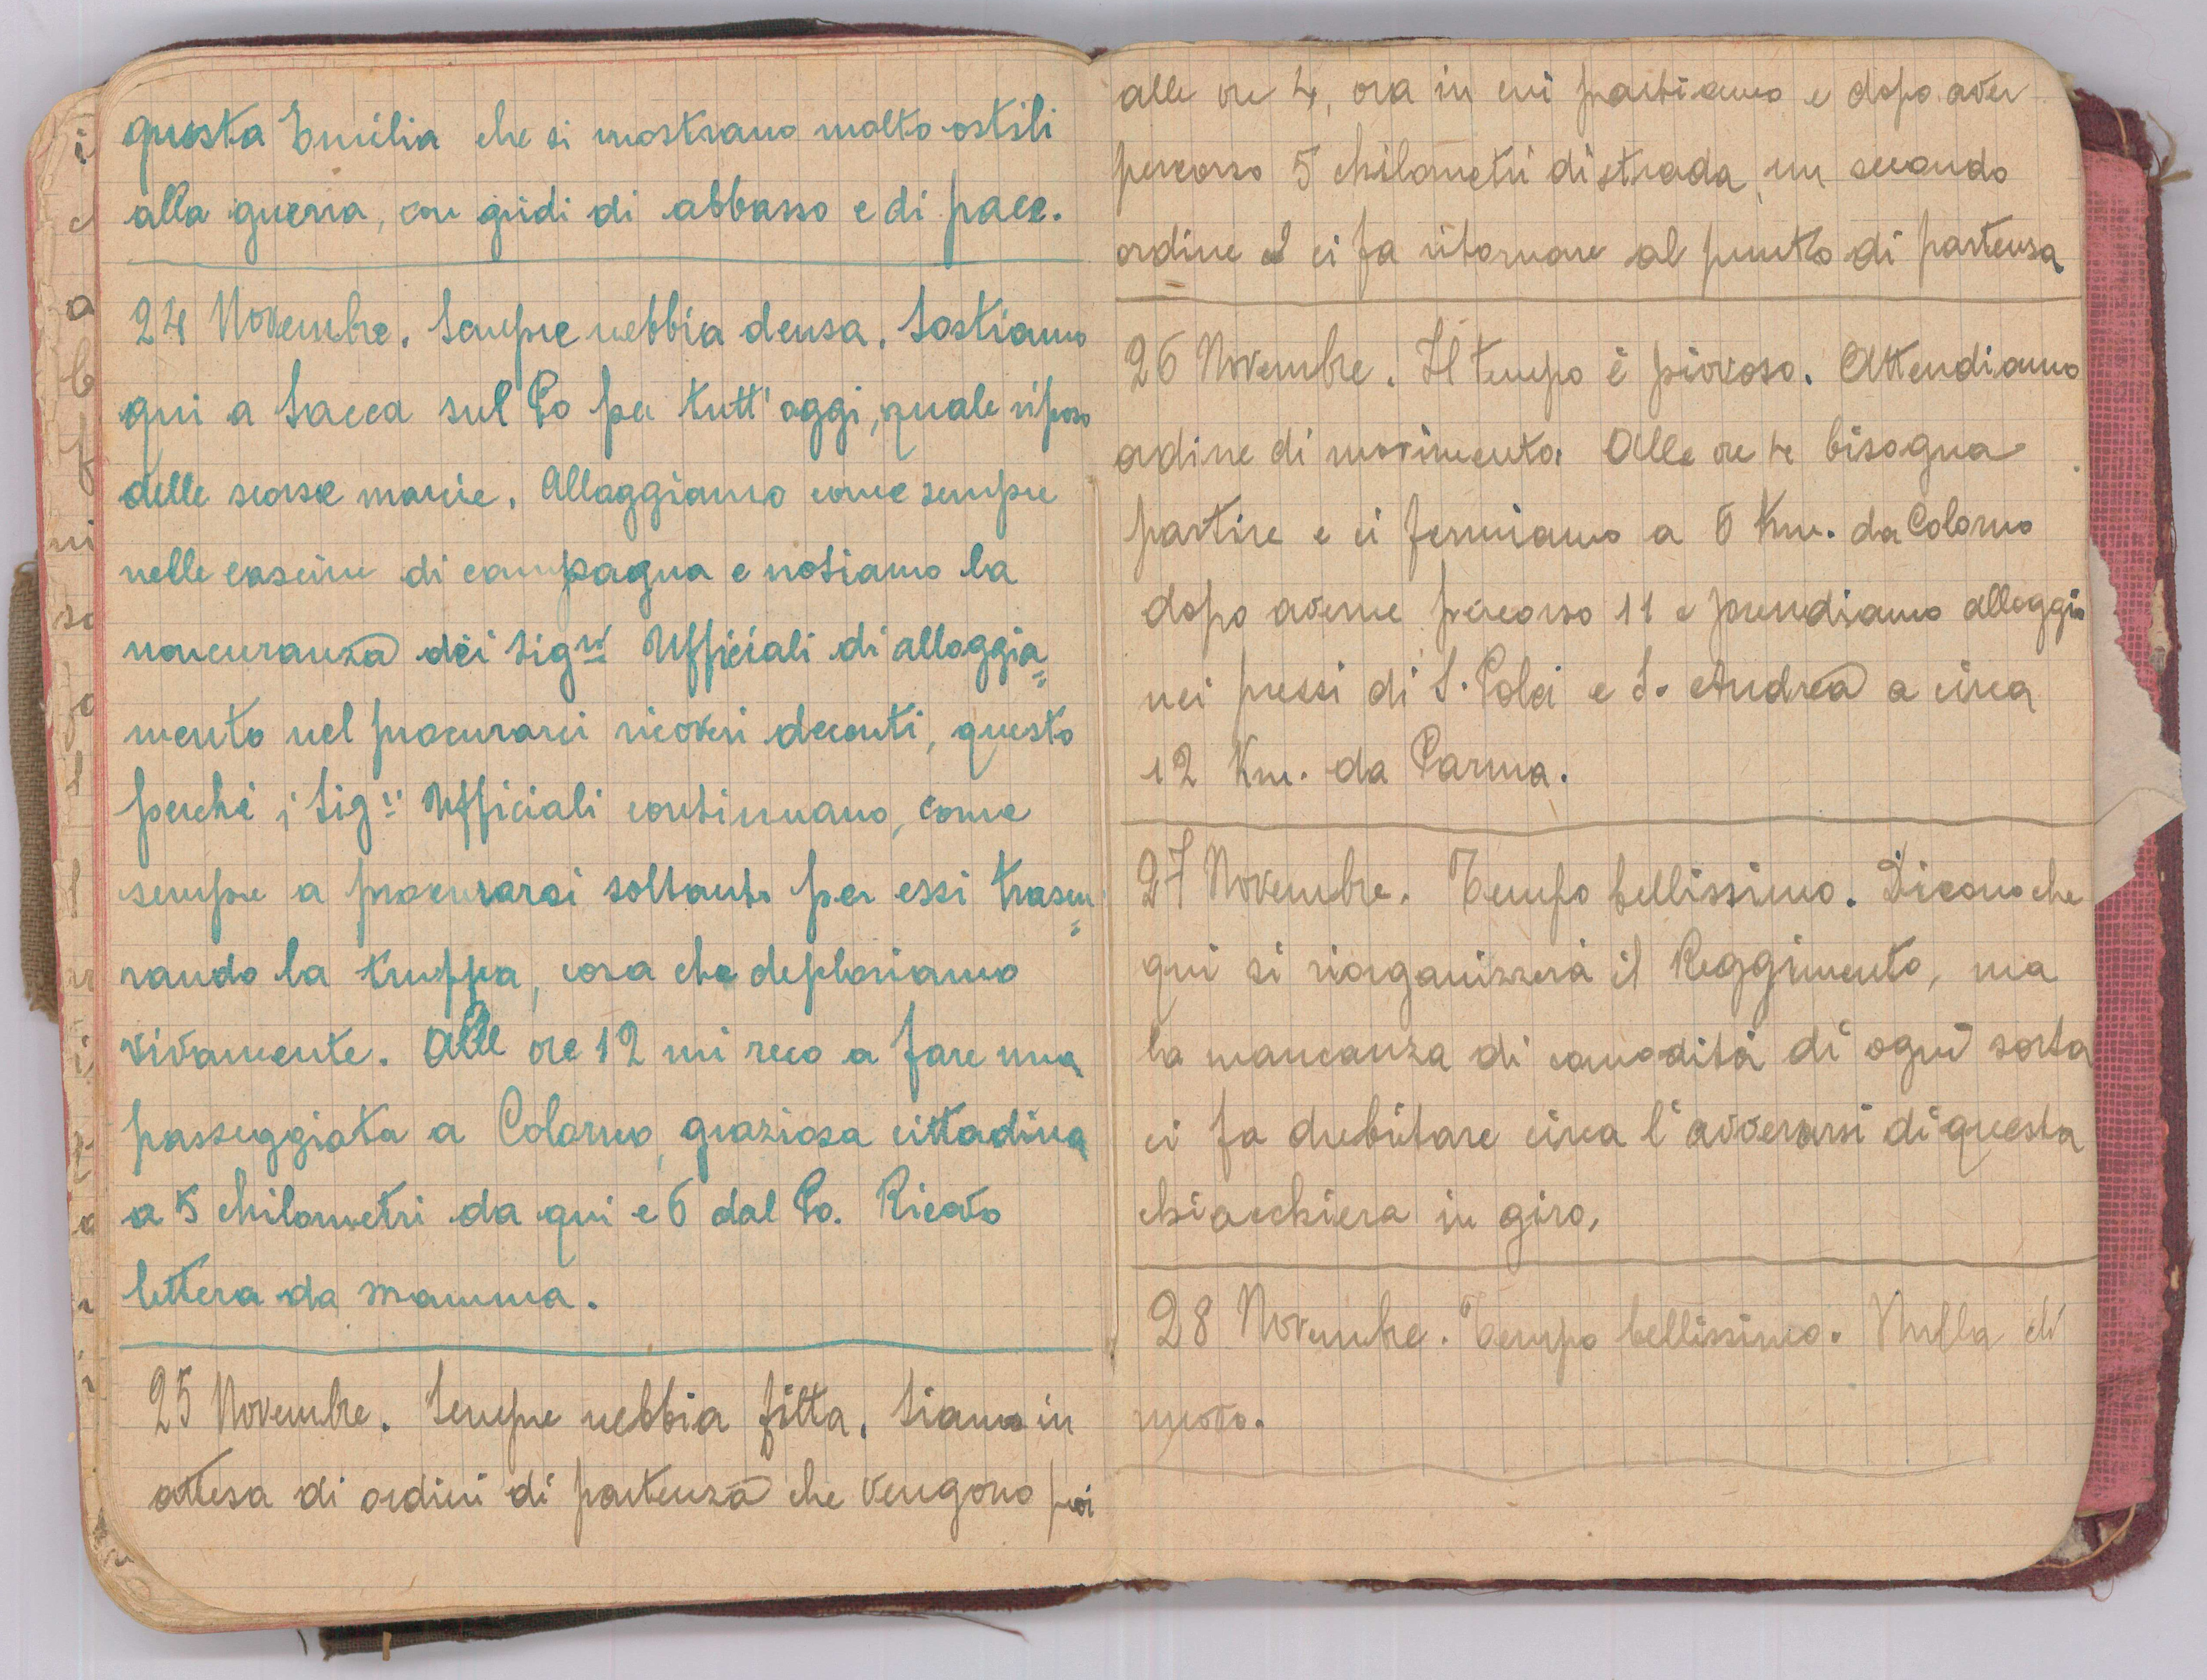 questa Emilia che si mostrano molto ostili
alla guerra, con gridi di abbasso e di pace.
24 Novembre. Sempre nebbia densa. Sostiamo
qui a Sacca sul Po per tutt'oggi, quale riposo
delle scorse marcie. Alloggiamo come sempre
nelle cascine di campagna e notiamo la
noncuranza dei Sigri Ufficiali di alloggia=
mento nel procurarci ricoveri decenti, questo
perché i Sigri Ufficiali continuano, come
sempre a procurarsi soltanto per essi trascu=
rando la truppa, cosa che deploriamo
vivamente. Alle ore 12 mi reco a fare una
passeggiata a Colorno, graziosa cittadina
a 5 chilometri da qui e 6 dal Po. Ricevo
lettera da mamma.
25 Novembre. Sempre nebbia fitta. Siamo in
attesa di ordini di partenza che vengono poi
alle ore 4, ora in cui partiamo e dopo aver
percorso 5 chilometri di strada, un secondo
ordine ci fa ritornare al punto di partenza
26 Novembre. Il tempo è piovoso. Attendiamo
ordine di movimento. Alle ore 4 bisogna
partire e ci fermiamo a 6 Km. da Colorno
dopo averne percorso 11 e prendiamo alloggio
nei pressi di S. Polo e S. Andrea a circa
12 Km. da Parma.
27 Novembre. Tempo bellissimo. Dicono che
qui si riorganizzerà il Reggimento, ma
la mancanza di comodità di ogni sorta
ci fa dubitare circa l'avverarsi di questa
chiacchiera in giro.
28 Novembre. Tempo bellissimo. Nulla di
nuovo.